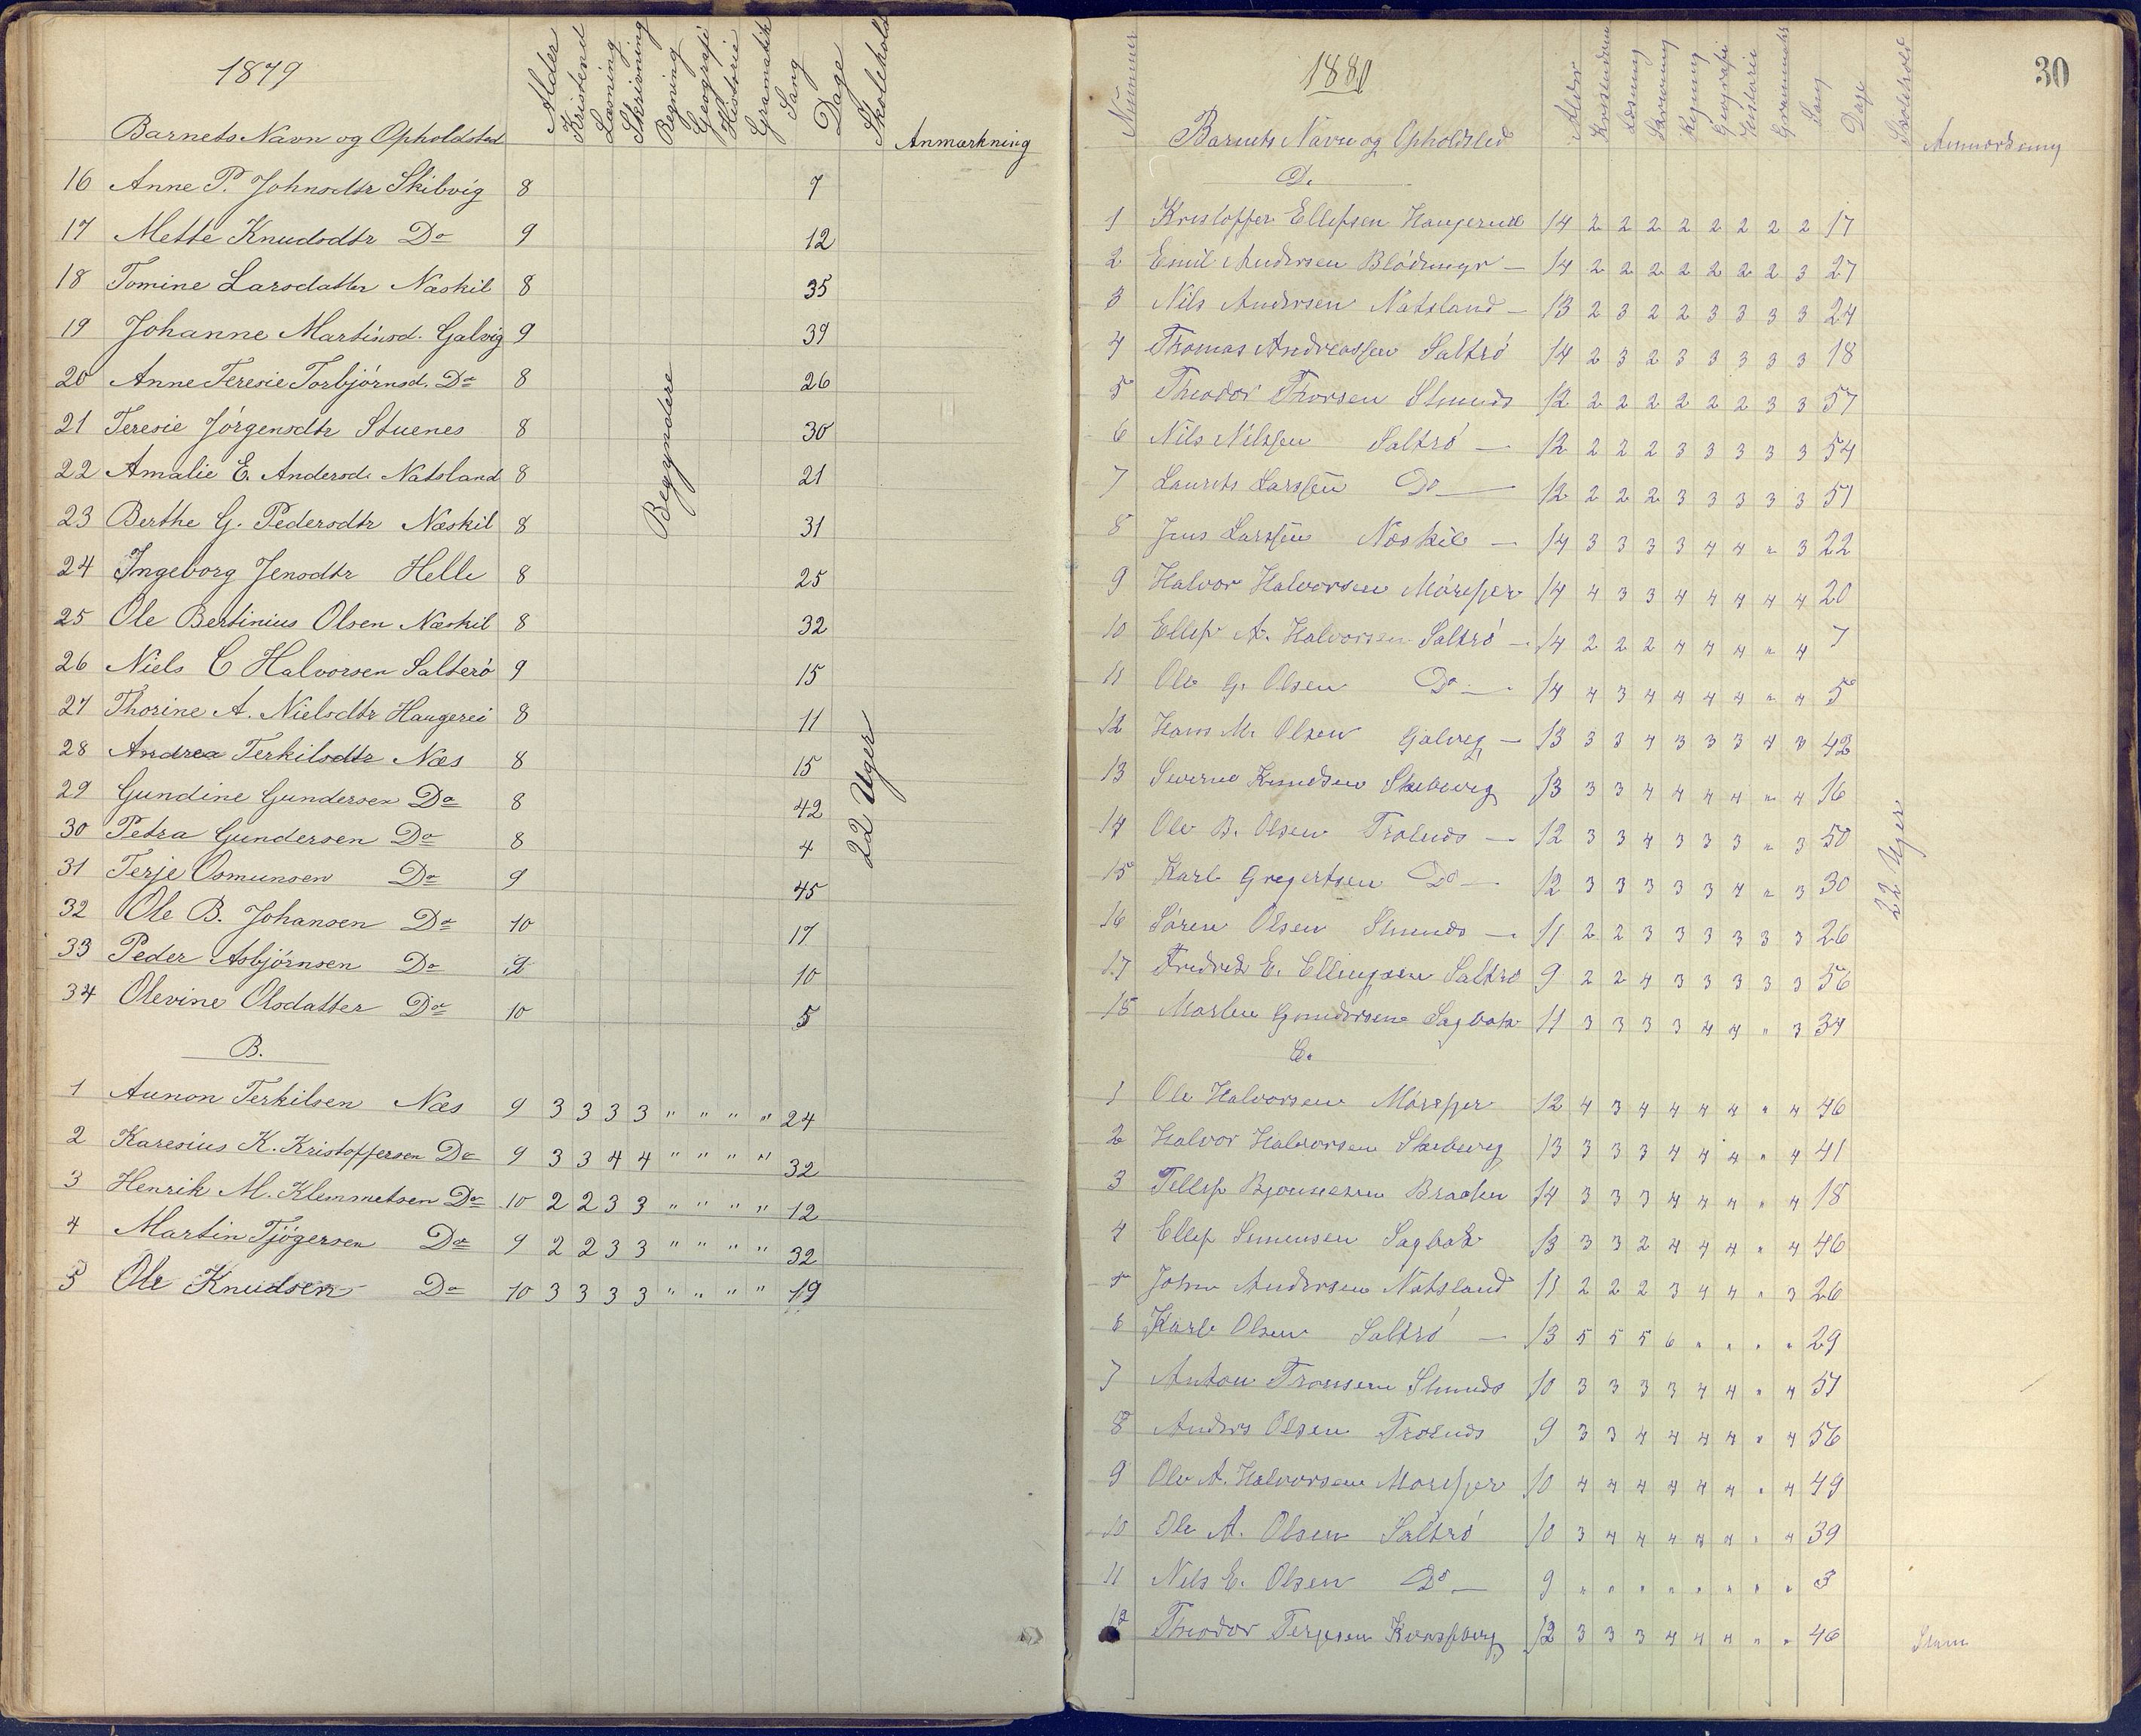 1879
Barnets Navn og Opholdsted Alder Kristend Læsning Skrivning Regning Geografi Historie Gramatik Sang Dage Skolehold Anmærkning
16 Anne P. Johnsdtr Skibvig 8 7
17 Mette Knudsdtr Do 9 12
18 Tomine Larsdatter Næskil 8 35
19 Johanne Martinsd. Galvig 9 39
20 Anne Teresie Torbjørnsd. Do 8 26
21 Teresie Jørgensdtr Stuenes 8 30
22 Amalie E. Andersd. Natsland 8 21
23 Berthe G. Pedersdtr Næskil 8 31
24 Ingeborg Jensdtr Helle 8 25
25 Ole Bertinius Olsen Næskil 8 32
26 Niels C Halvorsen Salterö 9 15
27 Thorine A. Nielsdtr Haugerei 8 11
28 Andrea Terkilsdtr Næs 8 15
29 Gundine Gundersen Do 8 42
30 Petra Gundersen Do 8 4
31 Terje Osmunsen Do 9 45
32 Ole B. Johansen Do 10 17
33 Peder Asbjørnsen Do 9 10
34 Olevine Olsdatter Do 10 5
Begyndere
22 Uger
B.
1 Aunon Terkilsen Næs 9 3 3 3 3 " " " " 24
2 Karesius K. Kristoffersen Do 9 3 3 4 4 " " " " 32
3 Henrik M. Klemmetsen Do 10 2 2 3 3 " " " " 12
4 Martin Tjögersen Do 9 2 2 3 3 " " " " 32
5 Ole Knudsen Do 10 3 3 3 3 " " " " 19
30
1880
Nummer Barnets Navn og Opholdsted Alder Kristendom Læsning Skrivning Regning Geografi Historie Gramatik Sang Dage Skolehold Anmærkning
D.
1 Kristoffer Ellefsen Haugerud 14 2 2 2 2 2 2 2 2 17
2 Emil Andersen Blödmyr 14 2 2 2 2 2 2 2 3 27
3 Nils Andersen Natsland 13 2 3 2 2 3 3 3 3 24
4 Thomas Andreassen Saltrö 14 2 3 2 3 3 3 3 3 18
5 Theodor Thorsen Stuends 12 2 2 2 2 2 2 3 3 57
6 Nils Nilssen Saltrö 12 2 2 2 3 3 3 3 3 54
7 Laurits Larssen Do 12 2 2 2 3 3 3 3 3 51
8 Jens Larssen Næskil 14 3 3 3 3 4 4 " 3 22
9 Halvor Halvorsen Mörefjer 14 4 3 3 4 4 4 4 4 20
10 Ellef A. Halvorsen Saltrö 14 2 2 2 4 4 4 " 4 7
11 Ole G. Olsen Do 14 4 3 4 4 4 4 " 4 5
12 Hans M. Olsen Galvig 13 3 3 4 3 3 3 4 3 42
13 Severin Knudsen Skibevig 13 3 3 4 4 4 4 " 4 16
14 Ole B. Olsen Trolnds 12 3 3 4 3 3 3 " 3 50
15 Karl Gregertsen Do 12 3 3 3 3 3 4 " 3 30
16 Sören Olsen Stuends 11 2 2 3 3 3 3 3 3 26
17 Fredrik E. Ellingsen Saltrö 9 2 2 4 3 3 3 3 3 56
18 Morten Gundersen Sagbak 11 3 3 3 3 4 4 " 3 34
22 Uger
E.
1 Ole Halvorsen Mörefjer 12 4 3 4 4 4 4 " 4 46
2 Halvor Halvorsen Skibevig 13 3 3 3 4 4 4 " 4 41
3 Tellef Bjonnesen Braaten 14 3 3 3 4 4 4 " 4 18
4 Ellef Simensen Sagbak 13 3 3 2 4 4 4 " 4 46
5 John Andersen Natsland 11 2 2 2 3 4 4 " 3 26
6 Karl Olsen Saltrö 13 5 5 5 6 " " " " 29
7 Anton Tronsen Stuends 10 3 3 3 3 4 4 " 4 51
8 Anders Olsen Trolnds 9 3 3 4 4 4 4 " 4 56
9 Ole A. Halvorsen Morefjer 10 4 4 4 4 4 4 " 4 49
10 Ole A. Olsen Saltrö 10 3 4 4 4 4 4 " 4 39
11 Nils E. Olsen Do 9 " " " " " " " " 3
12 Theodor Terjesen 12 3 3 3 4 4 4 " " 46